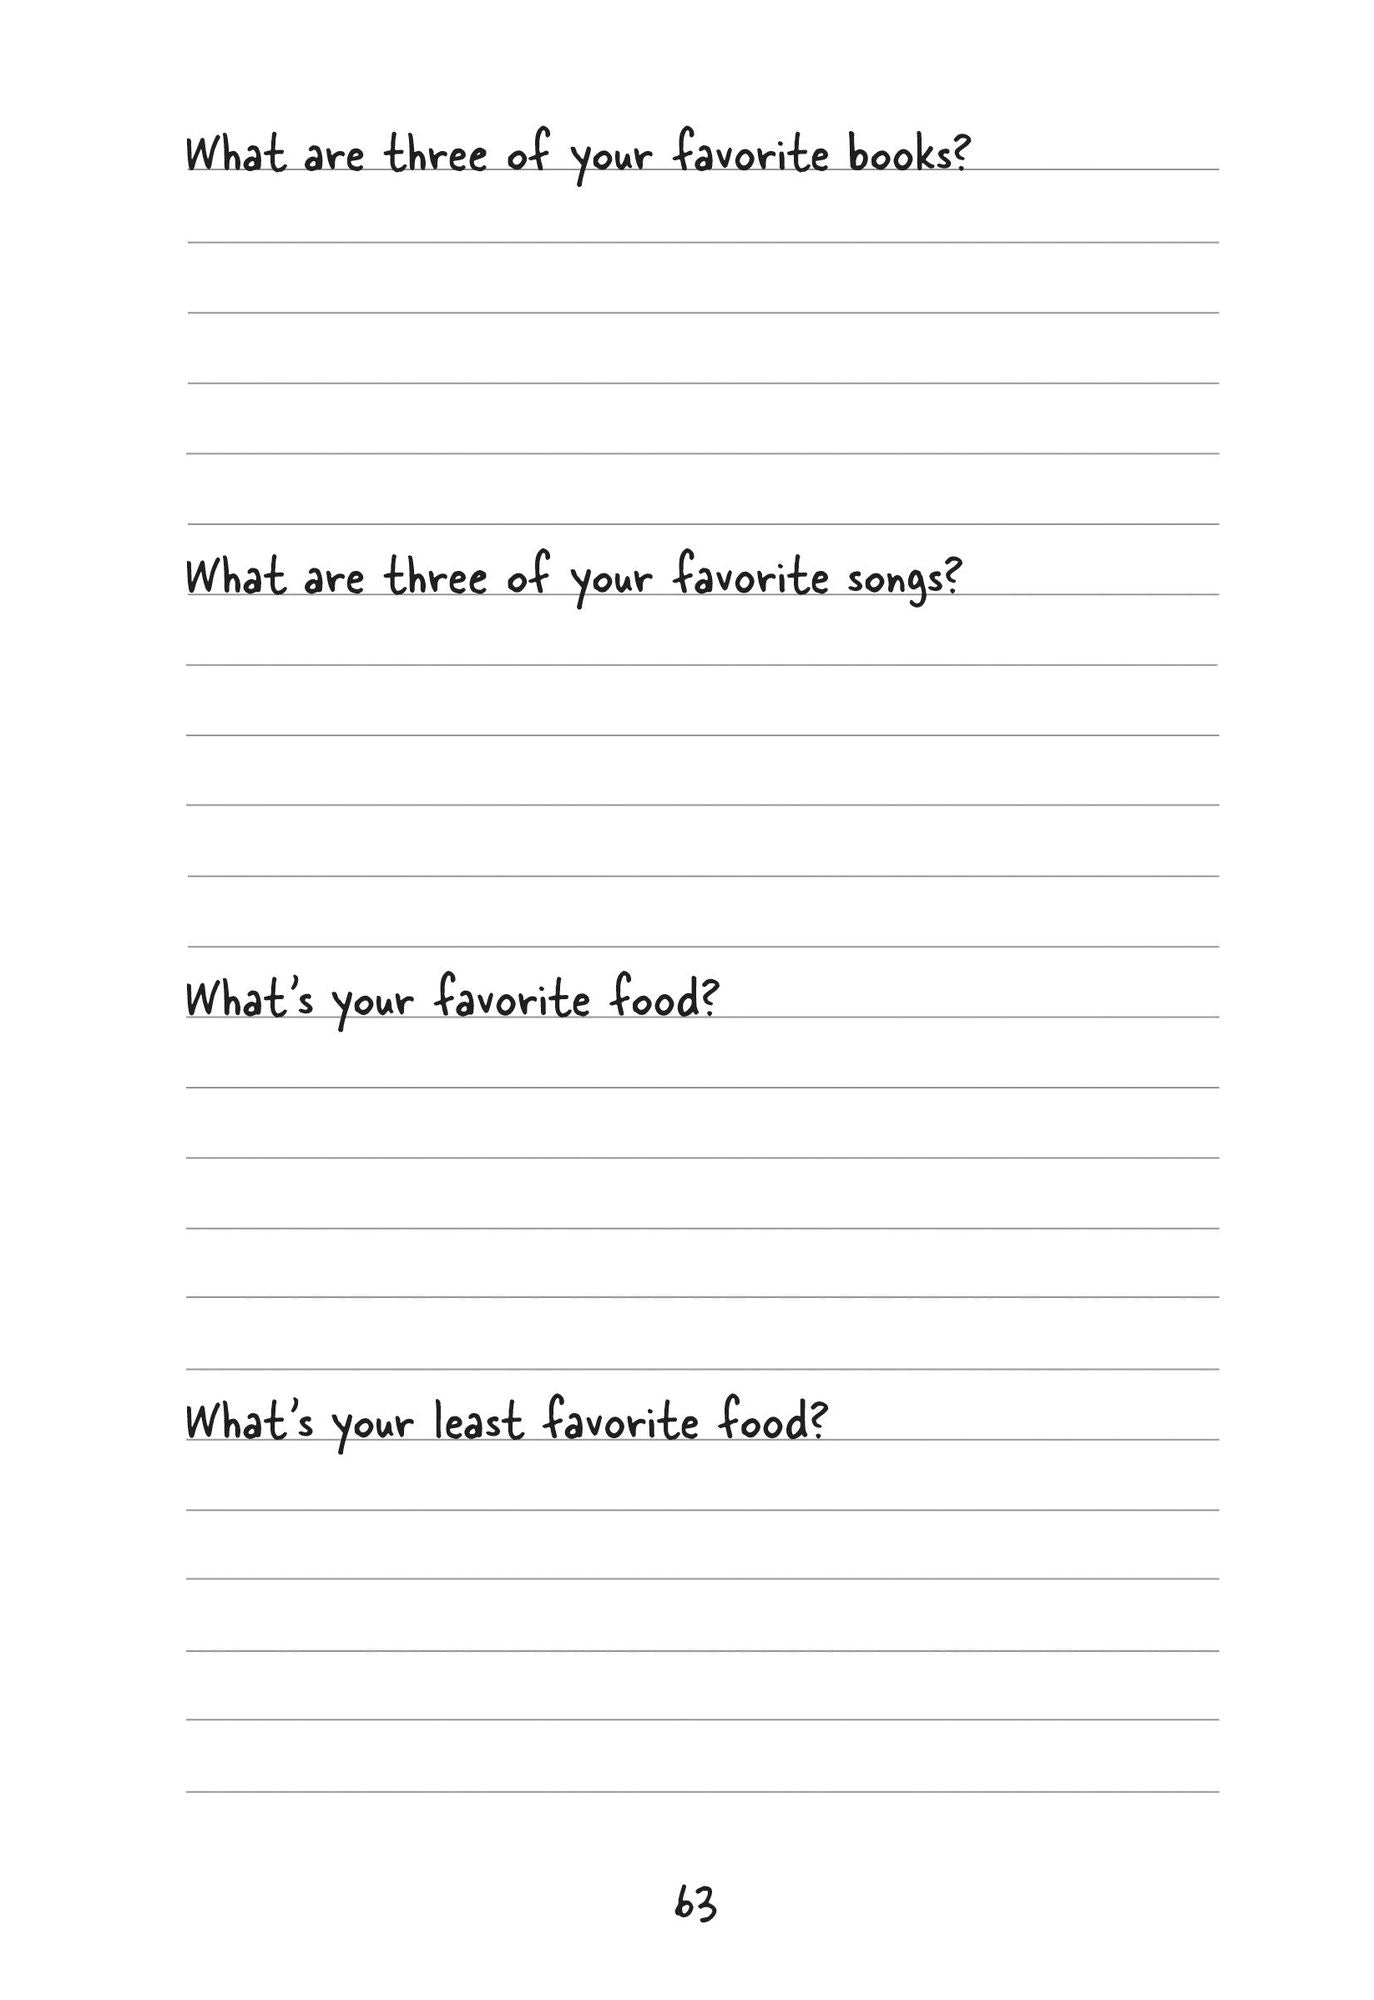 What are three of your favorite books?
What are three of your favorite songs?
What's your favorite food?
What's your least favorite food?
63